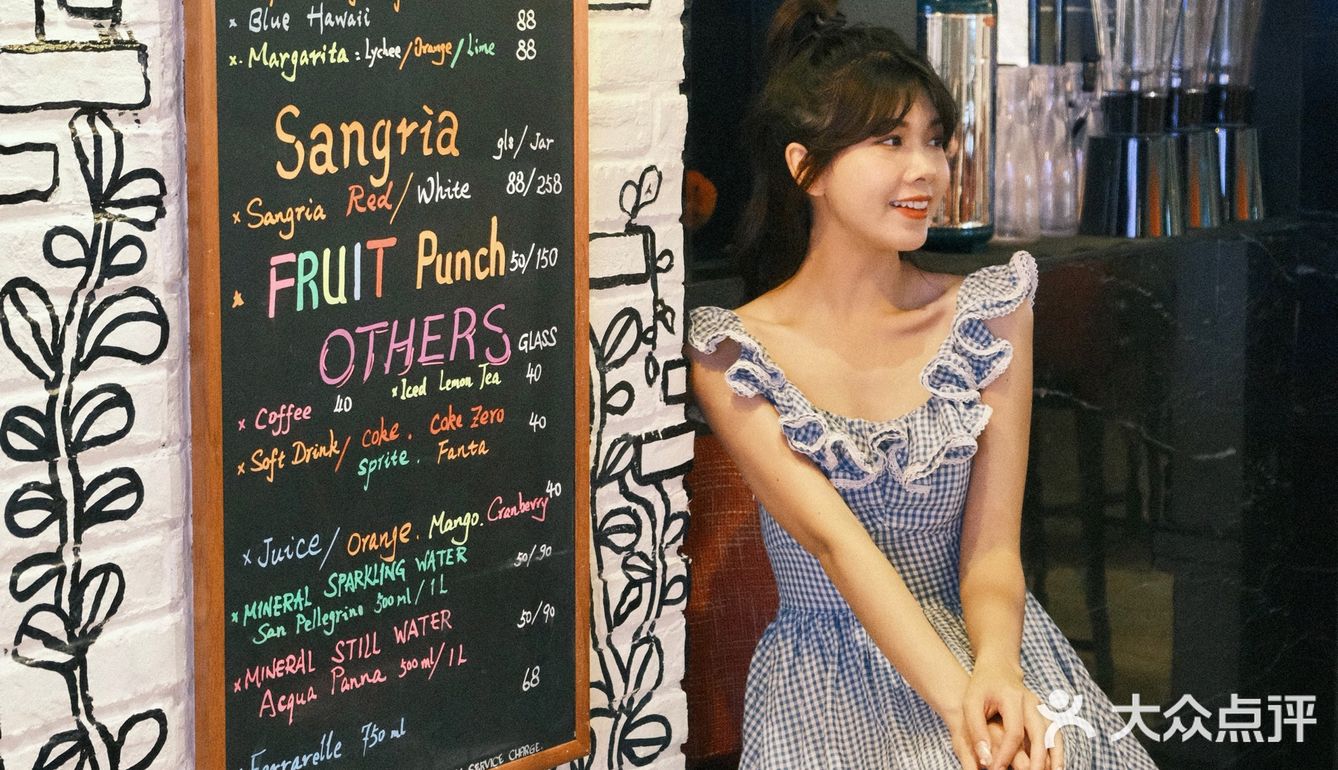 × Blue Hawaii 88
×. Margarita : Lychee/Orange/Lime 88
Sangrìa gls/Jar
× Sangria Red/White 88/258
FRUIT Punch 50/150
OTHERS GLASS
× Iced Lemon Tea 40
× Coffee 40
× Soft Drink/ Coke. Coke Zero 40
Sprite. Fanta
× Juice/ Orange. Mango. Cranberry 40
× MINERAL SPARKLING WATER 50/90
San Pellegrino 500ml/1L
× MINERAL STILL WATER 50/90
Acqua Panna 500ml/1L
68
Ferrarelle 750 ml
SERVICE CHARGE.
大众点评